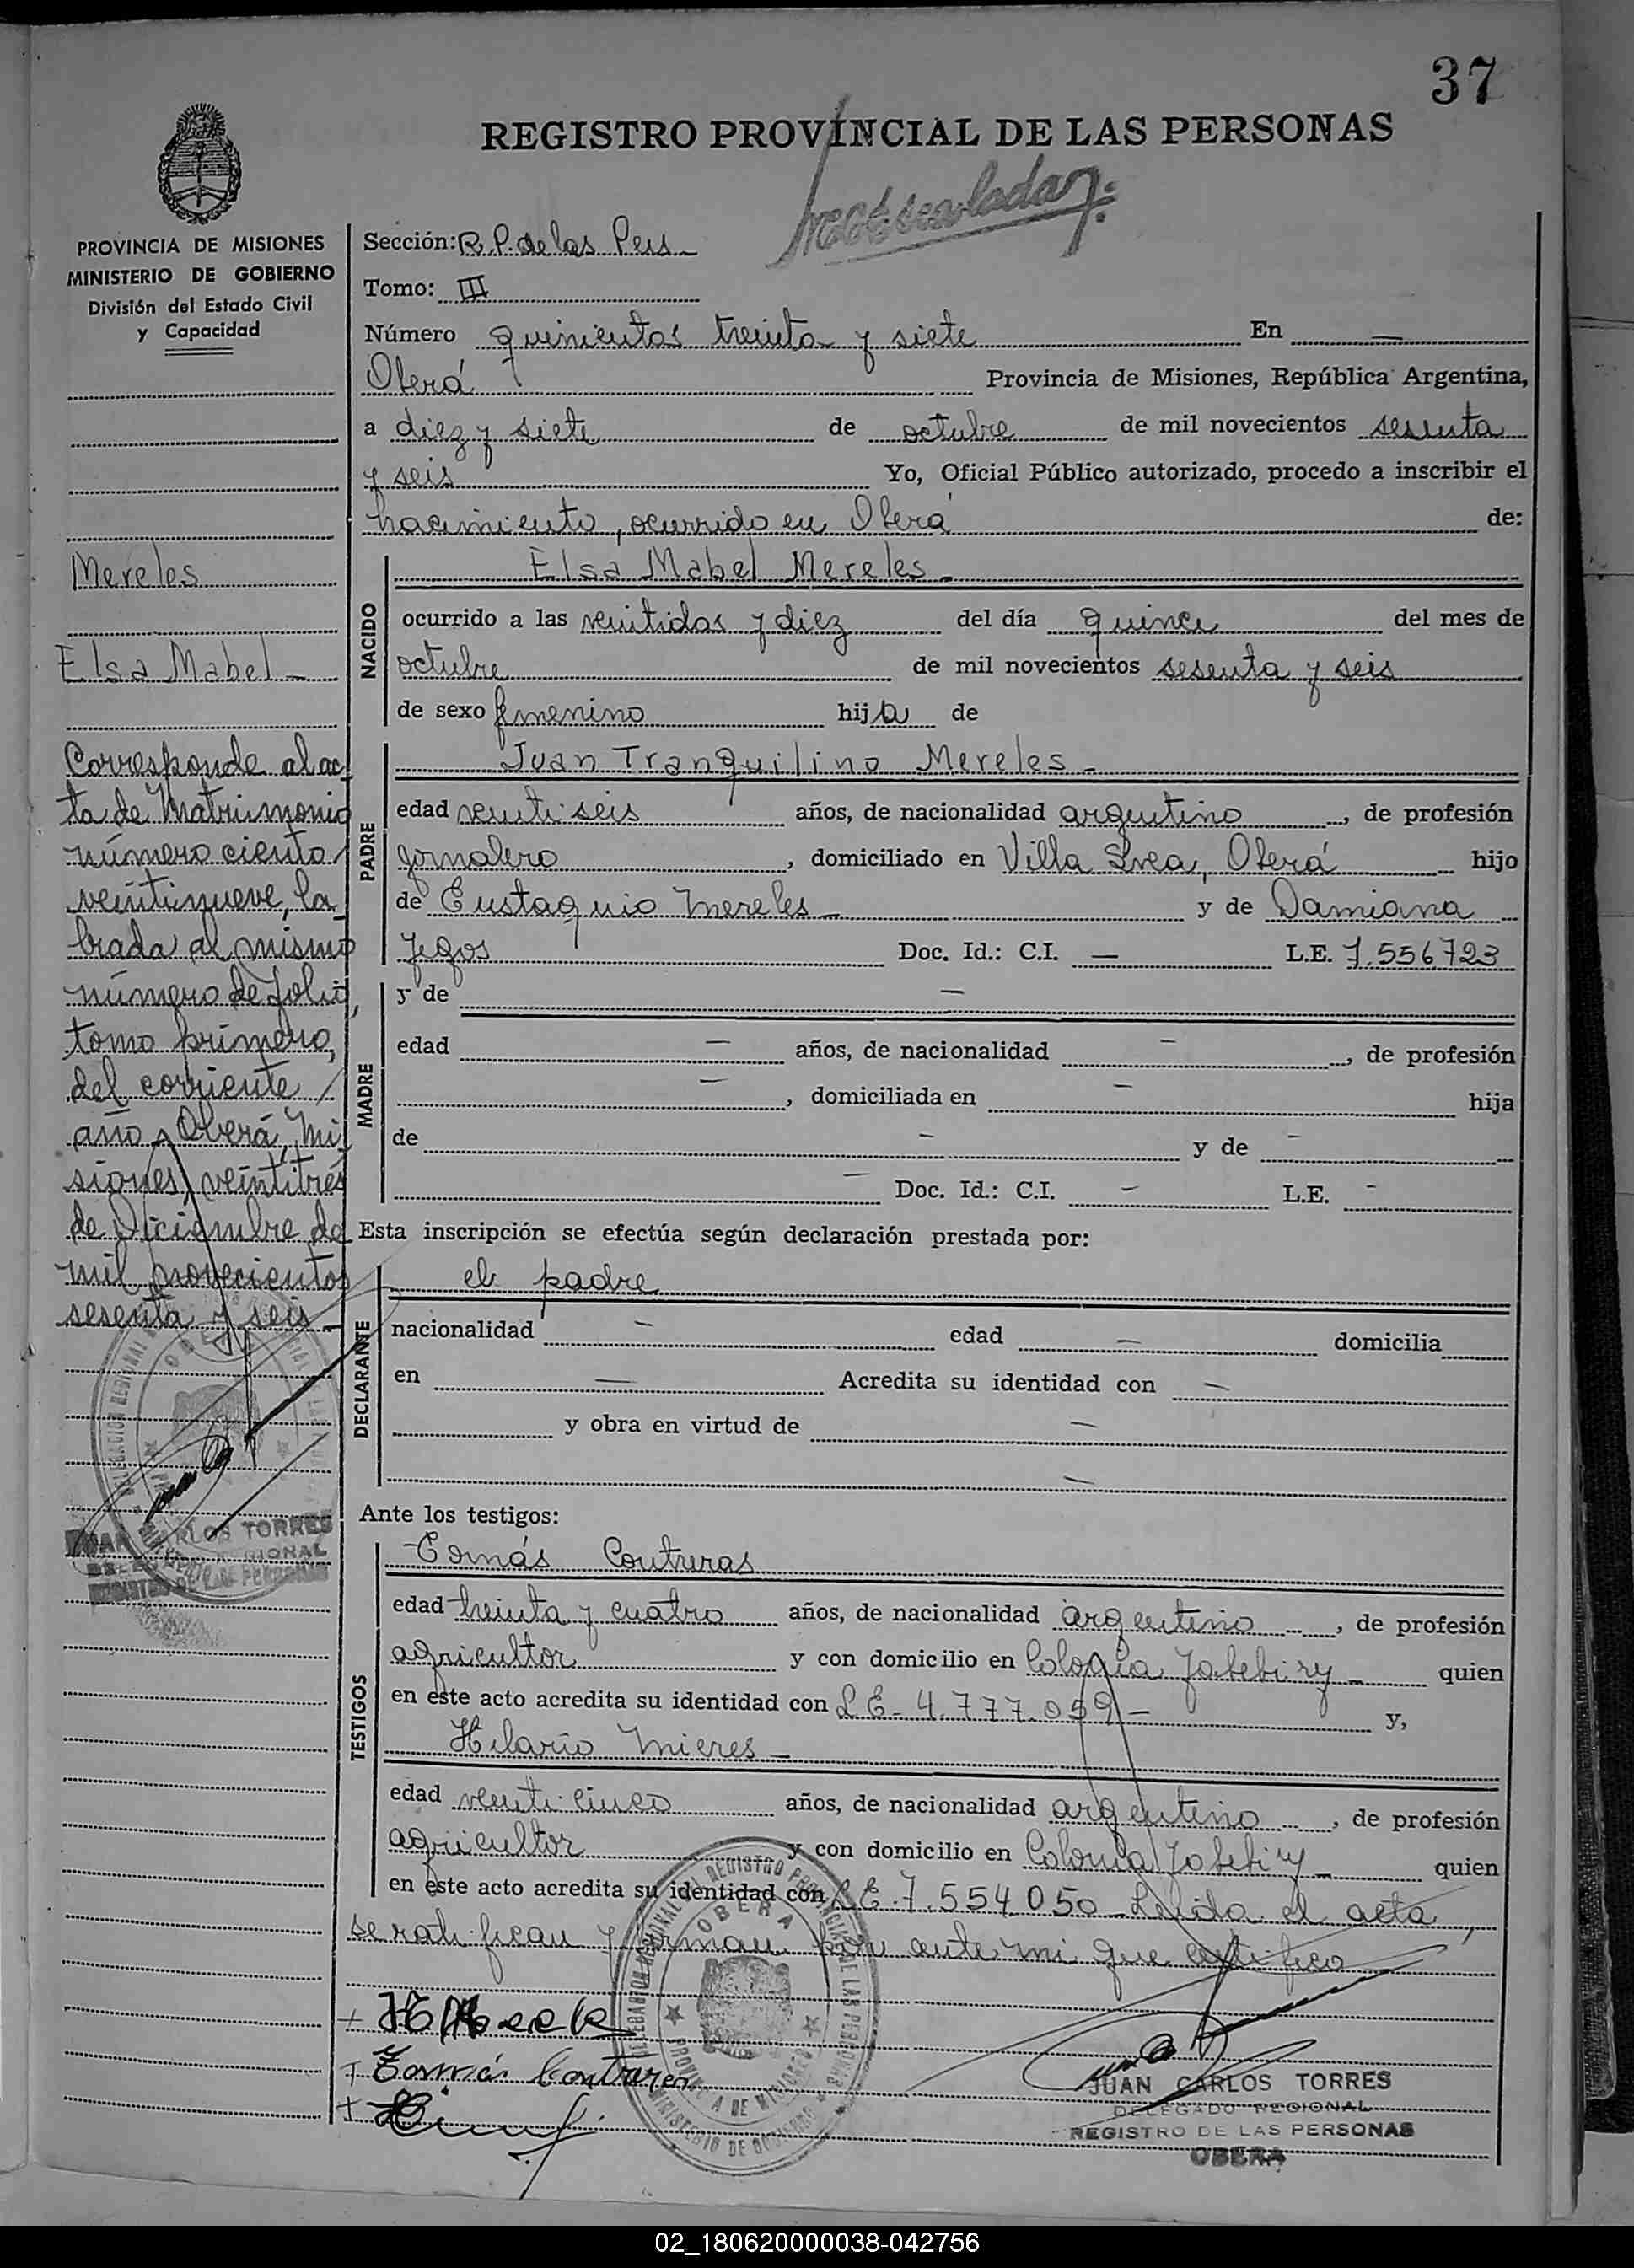 37
REGISTRO PROVINCIAL DE LAS PERSONAS
PROVINCIA DE MISIONES
MINISTERIO DE GOBIERNO
División del Estado Civil
y Capacidad
Mereles
Elsa Mabel -
Corresponde al ac
ta de Matrimonio
número ciento
veintinueve, la
brada al mismo
número de folio,
tomo primero,
del corriente /
año - Oberá, Mi
siones, veintitrés
de Diciembre de
mil novecientos
sesenta y seis -
CARLOS TORRES
Sección: R. P. de las Pers -
Tomo: III
Número quinientos treinta y siete En —
Oberá Provincia de Misiones, República Argentina,
a diez y siete de octubre de mil novecientos sesenta
y seis Yo, Oficial Público autorizado, procedo a inscribir el
nacimiento, ocurrido en Oberá de:
NACIDO
Elsa Mabel Mereles -
ocurrido a las veintidos y diez del día quince del mes de
octubre de mil novecientos sesenta y seis
de sexo femenino hija de
PADRE
Juan Tranquilino Mereles -
edad veinti seis años, de nacionalidad argentino, de profesión
jornalero, domiciliado en Villa Svea, Oberá hijo
de Eustaquio Mereles - y de Damiana
Doc. Id.: C.I. — L.E. 7.556.723
MADRE
y de —
edad — años, de nacionalidad —, de profesión
—, domiciliada en — hija
de — y de -
— Doc. Id.: C.I. - L.E. -
Esta inscripción se efectúa según declaración prestada por:
DECLARANTE
el padre
nacionalidad — edad — domicilia
en — Acredita su identidad con —
y obra en virtud de —
—
Ante los testigos:
TESTIGOS
Tomás Contreras
edad treinta y cuatro años, de nacionalidad argentino, de profesión
agricultor y con domicilio en Colonia Yabebiry - quien
en este acto acredita su identidad con L E - 4.777.059 - y,
Hilario Mieres -
edad veinti cinco años, de nacionalidad argentino, de profesión
agricultor y con domicilio en Colonia Yabebiry - quien
en este acto acredita su identidad con L E. 7.554.050 - Leída el acta,
se ratifican y firman por ante mi que certifico
Tomás Contrares
DELEGACION REGIONAL REGISTRO PROVINCIAL DE LAS PERSONAS
OBERA
PROVINCIA DE MISIONES
MINISTERIO DE GOBIERNO
JUAN CARLOS TORRES
DELEGADO REGIONAL
REGISTRO DE LAS PERSONAS
OBERA
02_180620000038-042756